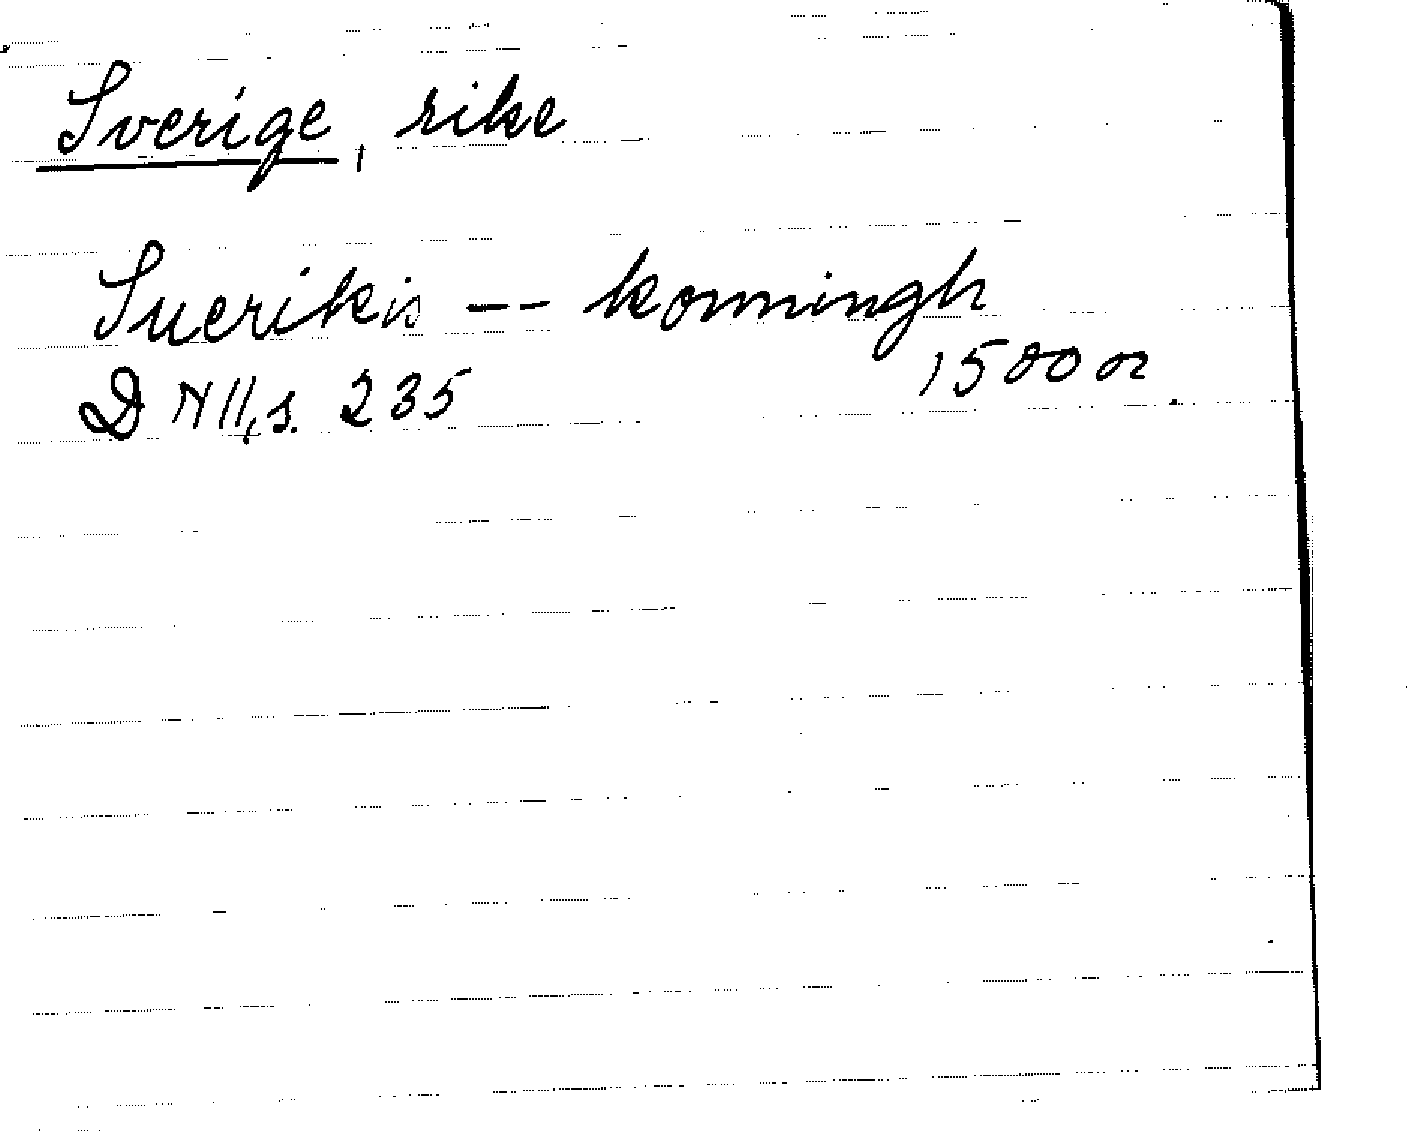 Sverige, rike
Suerikis -- konningh
D N II, s. 235 1500 a.